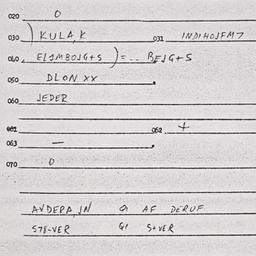 020 0
030 ) KULA,K 031 INDIHOJFM7
040, ELJMBOJG+S ) = .. BEJG+S
050 DLON XX
060 JEDER
061 062 +
063 —
070 0
AVDEPA, IN G AF DERUF
578-VER G1 S+VER